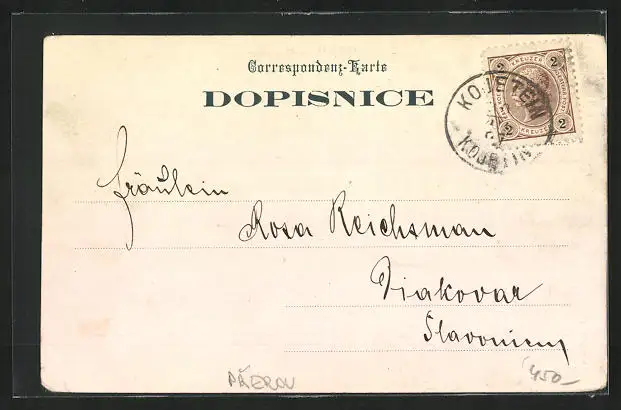 Correspondenz-Karte
DOPISNICE
2 KREUZER 2
2 KREUZER 2
KOJETEIN
KOJETIN
Fräulein
Rosa Reichsman
Diakovar
Slavonien
PŘEROV
450-